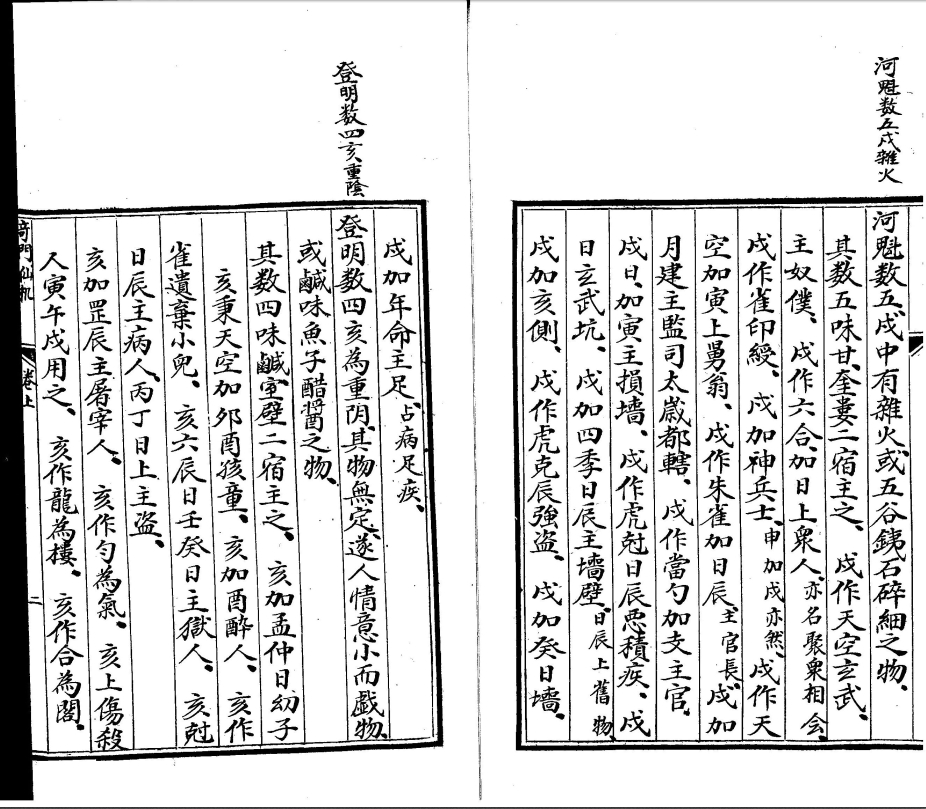 河魁数五戌雜火
河魁数五、戌中有雜火、或五谷銕石碎細之物、
其数五味甘、奎婁二宿主之、戌作天空玄武、
主奴僕、戌作六合、加日上衆人、亦名聚衆相会、
戌作雀印綬、戌加神兵士、申加戌亦然、戌作天
空加寅上舅翁、戌作朱雀加日辰、主官長、戌加
月建主監司太歲都轄、戌作當勾加支主官、
戌日、加寅主損墻、戌作虎尅日辰悪積疾、戌
日玄武坑、戌加四季日辰主墻壁、日辰上舊物、
戌加亥側、戌作虎克辰強盗、戌加癸日墻、
戌加年命主足、占病足疾、
登明数四亥重陰
登明数四亥為重阴、其物無定、遂人情意小而戯物、
或鹹味魚子醋醬之物、
其数四味鹹、室壁二宿主之、亥加孟仲日幼子
亥乗天空加夘酉孩童、亥加酉醉人、亥作
雀遺棄小兒、亥六辰日壬癸日主獄人、亥尅
日辰主病人、丙丁日上主盗、
亥加罡辰主屠宰人、亥作勾為氣、亥上傷殺
人寅午戌用之、亥作龍為樓、亥作合為閣、
奇門仙机
卷上
二